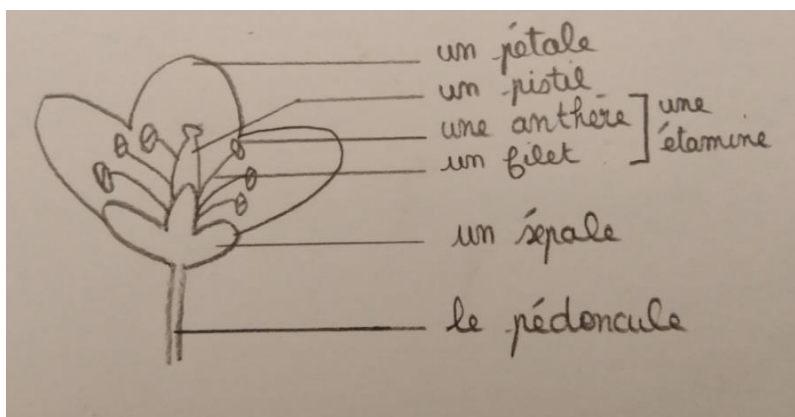 un pétale
un pistil
une anthère
un filet
une
étamine
un sépale
le pédoncule